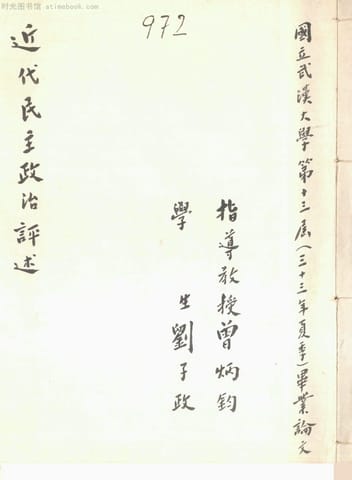 时光图书馆 - atimebook.com
972
國立武漢大學第十三屆(三十三年夏季)畢業論文
指導教授曾炳鈞
學 生 劉子政
近代民主政治評述